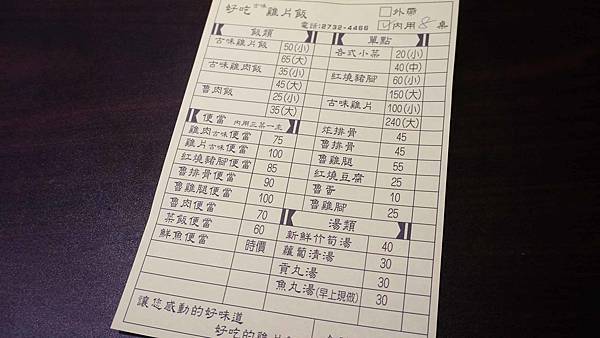 好吃古味雞片飯
□外帶
電話:2732-4466
☑內用 8 桌
飯類
古味雞片飯 50(小)
65(大)
古味雞肉飯 35(小)
45(大)
魯肉飯 25(小)
35(大)
便當 內用三菜一主
雞肉古味便當 75
雞片古味便當 100
紅燒豬腳便當 85
魯排骨便當 90
魯雞腿便當 100
魯肉便當 70
菜飯便當 60
鮮魚便當 時價
單點
各式小菜 20(小)
40(中)
紅燒豬腳 60(小)
150(大)
古味雞片 100(小)
240(大)
炸排骨 45
魯排骨 45
魯雞腿 55
紅燒豆腐 25
魯蛋 10
魯雞腳 25
湯類
新鮮竹筍湯 40
蘿蔔清湯 30
貢丸湯 30
魚丸湯(早上現做) 30
讓您感動的好味道
好吃的雞片